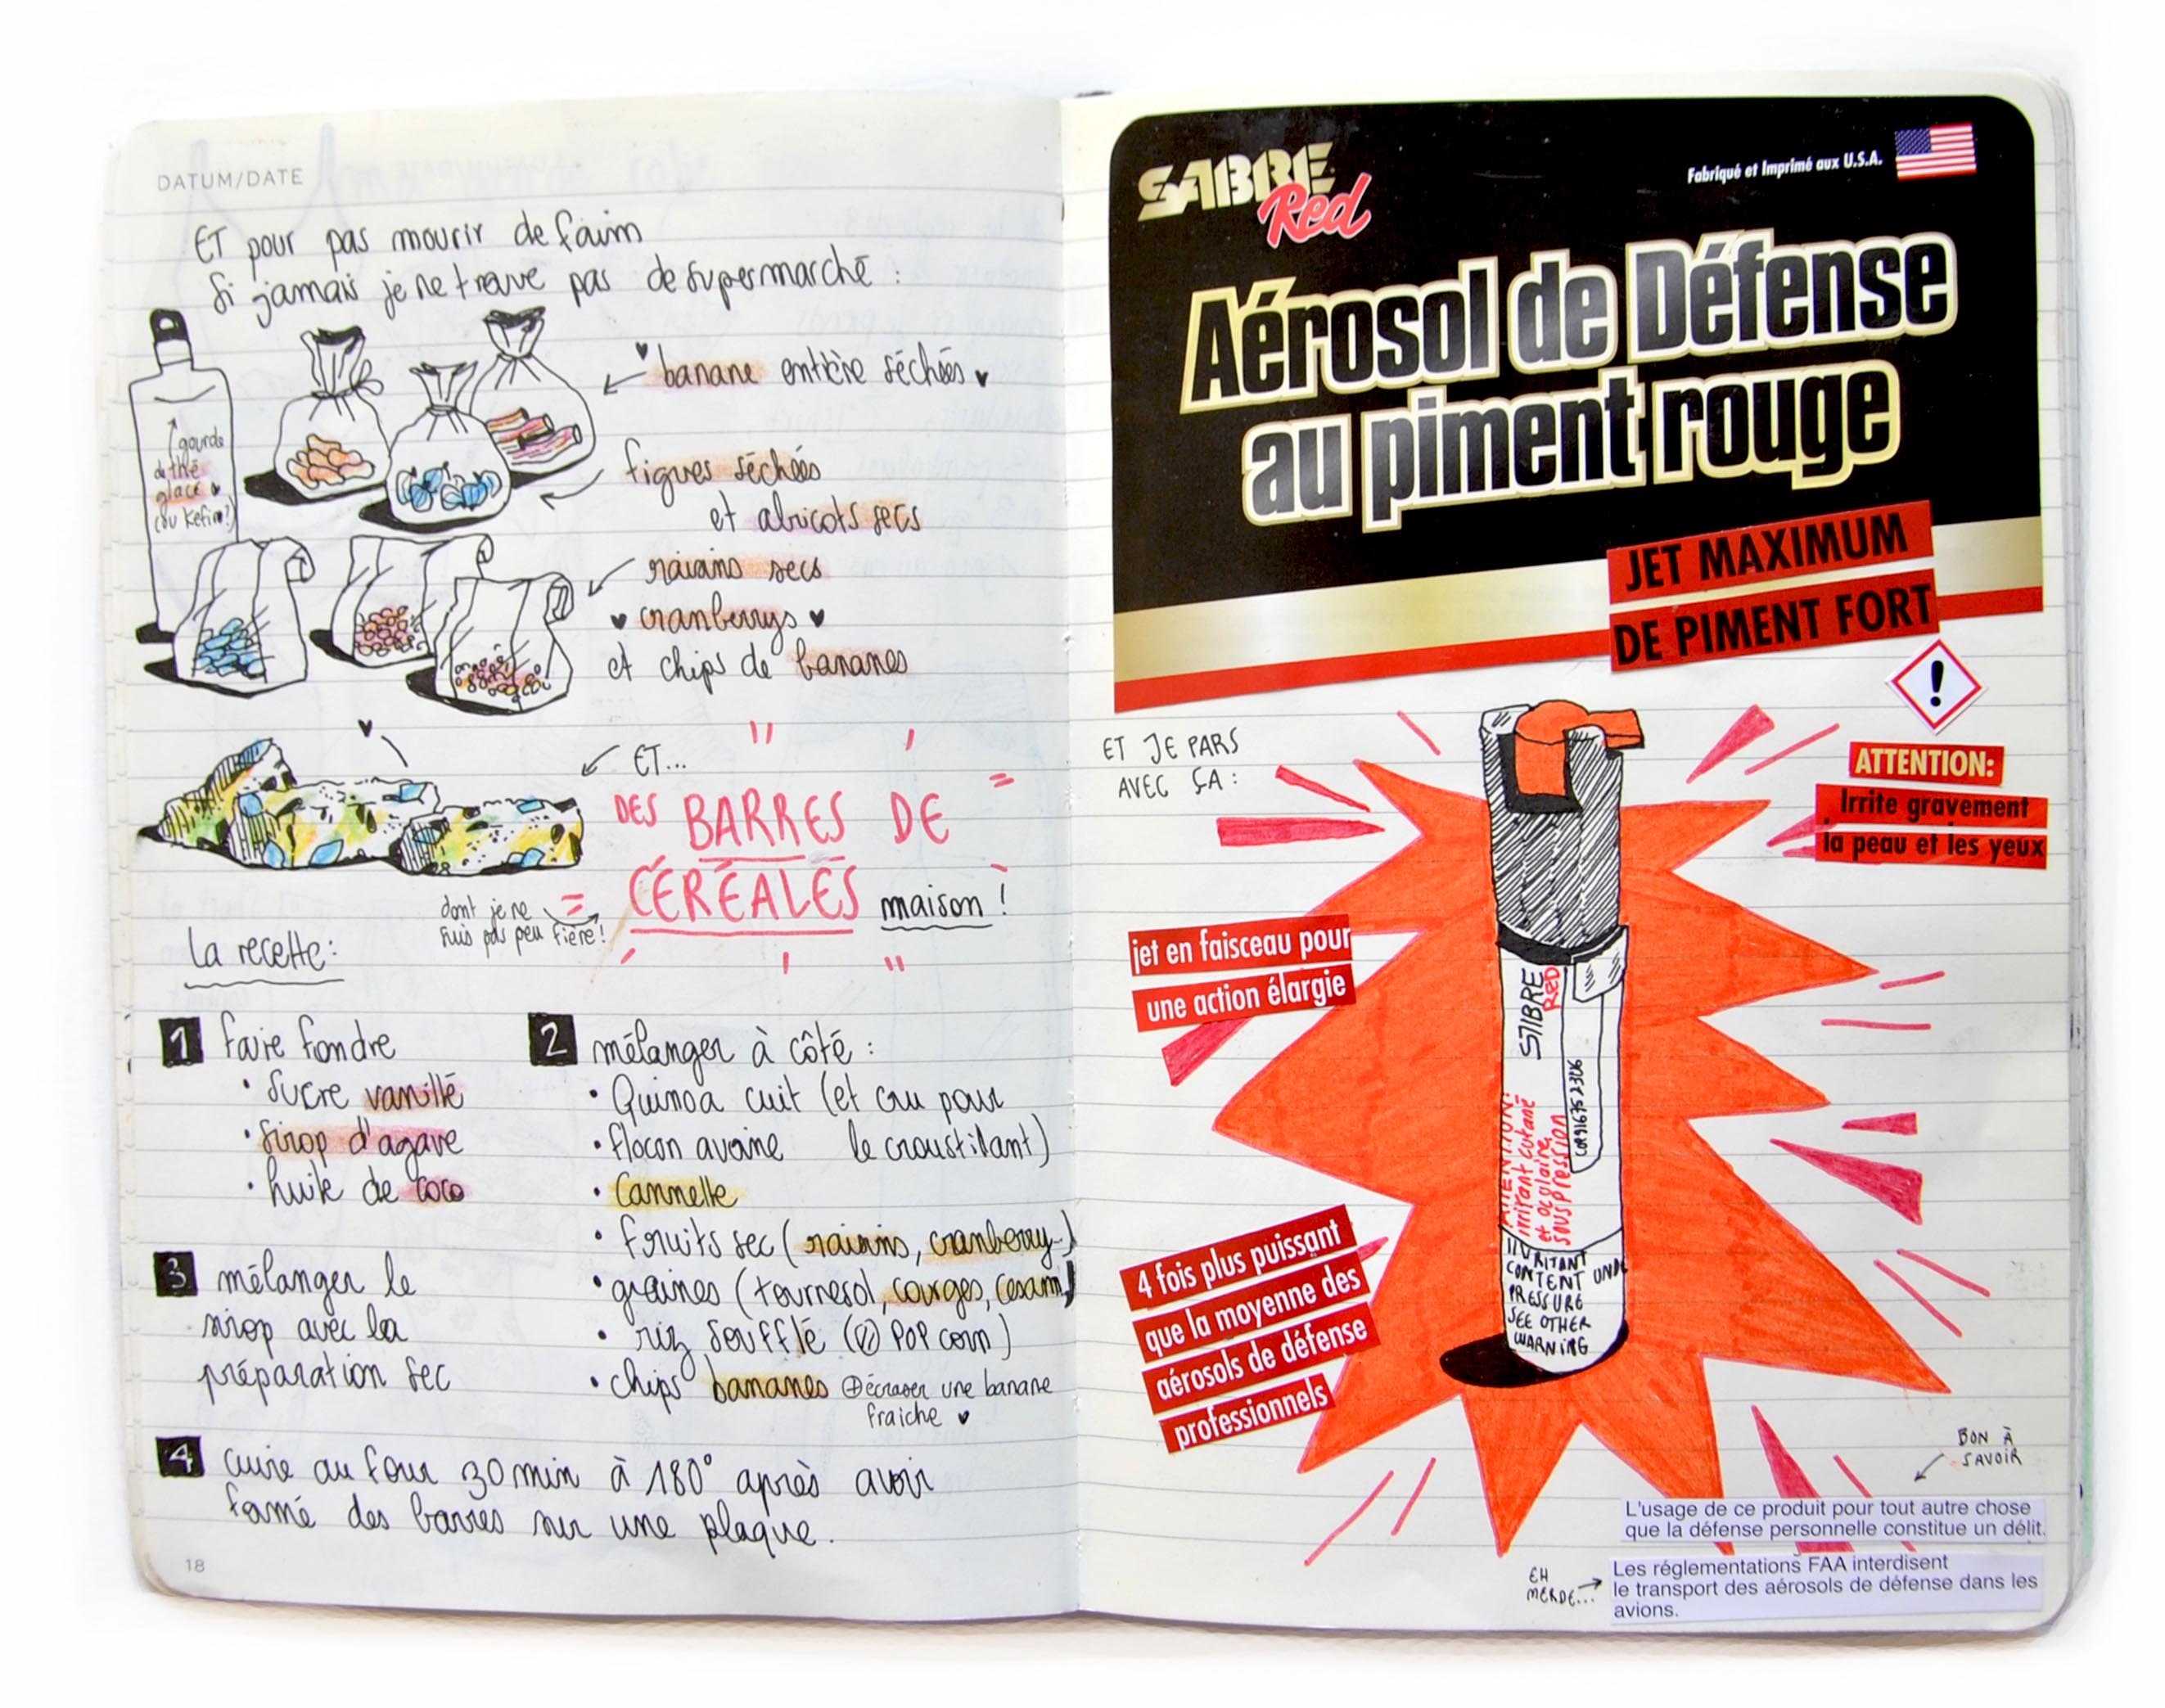 DATUM/DATE
ET pour pas mourir de faim
Si jamais je ne trouve pas de supermarché :
↑ gourde
de thé
glacé ♥
(ou Kefir?)
♥ banane entière séchées ♥
figues séchées
et abricots secs
raisins secs
♥ cranberrys ♥
et chips de bananes
ET...
DES BARRES DE
CÉRÉALES maison !
dont je ne
suis pas peu fière !
La recette :
1 faire fondre
• Sucre vanillé
• Sirop d'agave
• huile de coco
2 mélanger à côté :
• Quinoa cuit (et cru pour
le croustillant)
• flocon avoine
• Cannelle
• fruits sec (raisins, cranberry..)
• graines (tournesol, courges, cesam)
• riz soufflé (// POP corn)
• chips bananes ⊕ écraser une banane
fraiche ♥
3 mélanger le
sirop avec la
préparation sec
4 cuire au four 30 min à 180° après avoir
formé des barres sur une plaque.
18
SABRE
Red
Fabriqué et Imprimé aux U.S.A.
Aérosol de Défense
au piment rouge
JET MAXIMUM
DE PIMENT FORT
!
ET JE PARS
AVEC ÇA :
ATTENTION:
Irrite gravement
la peau et les yeux
jet en faisceau pour
une action élargie
4 fois plus puissant
que la moyenne des
aérosols de défense
professionnels
SABRE
RED
ATTENTION:
irritant cutané
et oculaire,
sous pression
CONTENT UNDE
PRESSURE
SEE OTHER
WARNING
BON À
SAVOIR
L'usage de ce produit pour tout autre chose
que la défense personnelle constitue un délit.
EH
MERDE...
Les réglementations FAA interdisent
le transport des aérosols de défense dans les
avions.